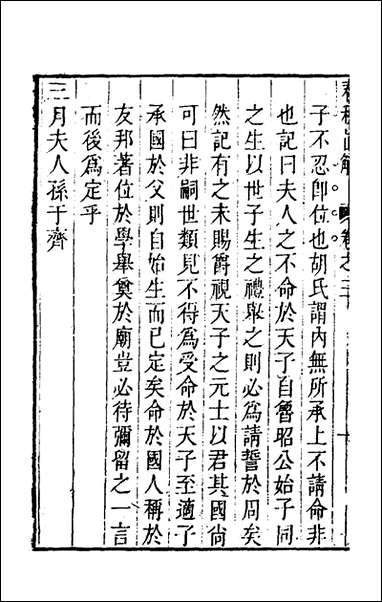 春秋直解 卷之三
子不忍卽位也胡氏謂內無所承上不請命非
也記曰夫人之不命於天子自魯昭公始子同
之生以世子生之禮舉之則必爲請誓於周矣
然記有之未賜爵視天子之元士以君其國尚
可曰非嗣世類見不得爲受命於天子至適子
承國於父則自始生而已定矣命於國人稱於
友邦著位於學舉奠於廟豈必待彌留之一言
而後爲定乎
三月夫人孫于齊